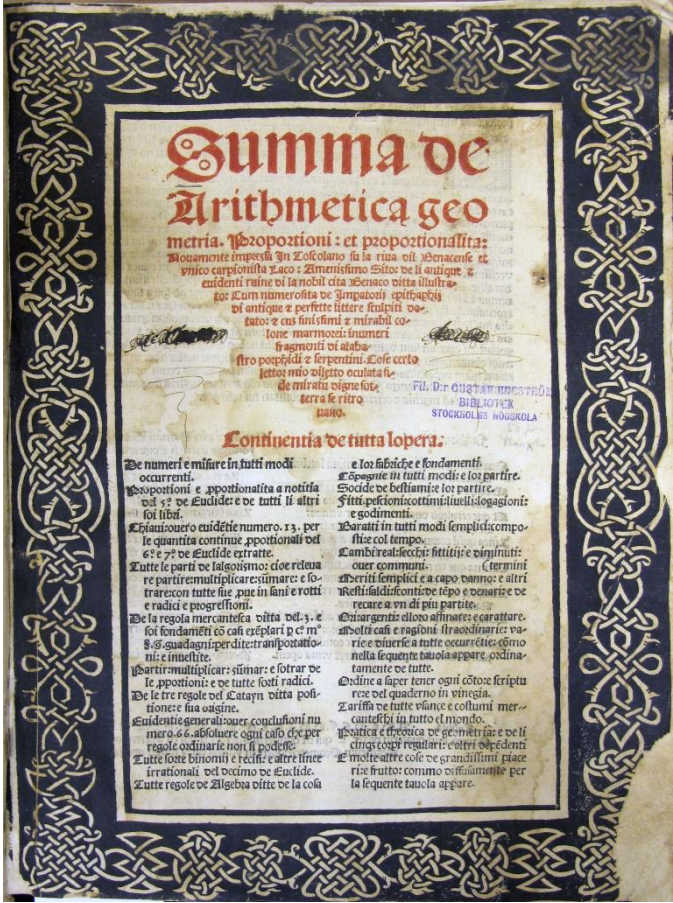 Summa de
Arithmetica geo
metria. Proportioni: et proportionalita:
Nouamente impressa In Toscolano su la riua dil Benacense et
vnico carpionista Laco: Amenissimo Sito: de li antique &
euidenti ruine di la nobil cita Benaco ditta illustra-
to: Cum numerosita de Impatorij epithaphij
di antique & perfette littere sculpiti do-
tato: & cus finissimi & mirabil co-
lone marmorei: inumeri
fragmenti di alaba-
stro porphidi & serpentini. Cose certo
lettor mio diletto oculata fi-
de miratu digne sot-
terra se ritro
uano.
FIL. D:r GUSTAF ENESTRÖMS
BIBLIOTEK
STOCKHOLMS HÖGSKOLA
Continentia de tutta lopera.
De numeri e misure in tutti modi
occurrenti.
Proportioni e ꝓportionalita a notitia
del 5º de Euclide: e de tutti li altri
soi libri.
Chiaui: ouero euidētie numero. 13. per
le quantita continue ꝓportionali del
6º e 7º de Euclide extratte.
Tutte le parti de lalgorismo: cioe releua
re partire: multiplicar: sūmare: e so-
trare: con tutte sue ꝓue in sani e rotti
e radici e progressioni.
De la regola mercantesca ditta del .3. e
soi fondamēti cō casi exēplari p cº mº
guadagni: perdite: transportatio-
ni: e inuestite.
Partir: multiplicar: sūmar: e sotrar de
le ꝓportioni: e de tutte sorti radici.
De le tre regole del Catayn ditta posi-
tione: e sua origine.
Euidentie generali: ouer conclusioni nu
mero .66. absoluere ogni caso che per
regole ordinarie non si podesse:
Tutte sorte binomij e recisi: e altre linee
irrationali del decimo de Euclide.
Tutte regole de Algebra ditte de la cosa
e lor fabriche e fondamenti.
Cōpagnie in tutti modi: e lor partire.
Socide de bestiami: e lor partire.
Fitti: pescioni: cottimi: liuelli: logagioni:
e godimenti.
Baratti in tutti modi semplici: compo-
sti: e col tempo.
Cambi reali: secchi: fittitij: e diminuti:
ouer communi. (termini
Meriti semplici e a capo danno: e altri
Resti: saldi: sconti: de tēpo e denari: e de
recare a vn di piu partite.
Ori: argenti: e lloro affinare: e carattare.
Molti casi e ragioni straordinarie: va-
rie e diuerse a tutte occurrētie: cōmo
nella sequente tauola appare ordina-
tamente de tutte.
Ordine a saper tener ogni cōto e scriptu
re: e del quaderno in vinegia.
Tariffa de tutte vsançe e costumi mer-
canteschi in tutto el mondo.
Pratica e theorica de geometria: e de li
cinque corpi regulari: e altri depēdenti
E molte altre cose de grandissimi piace
ri: e frutto: commo diffusamente per
la sequente tauola appare.